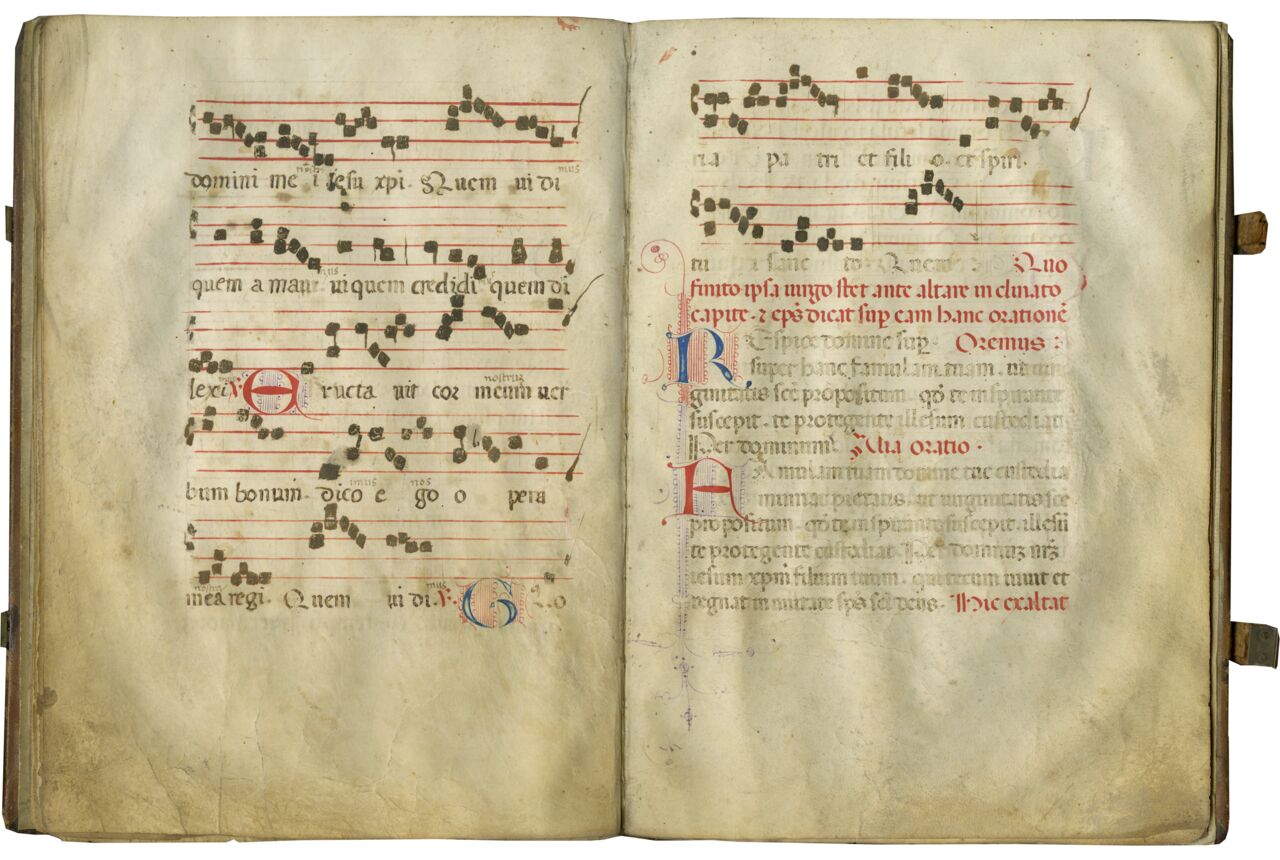 domini me i iesu xpi. Quem ui di
nostri
mus
quem a maui. in quem credidi quem di
mus
mus
lexi. ℣. E ructa uit cor meum uer
mus
nostrum
bum bonum. dico e go o pera
imus
nos
mea regi. Quem ui di. ℣. G lo
nostri
mus
ria pa tri et fili o. et spiri.
tu i sanc to. Quem. Quo
finito ipsa uirgo stet ante altare inclinato
capite. ⁊ eps dicat sup eam hanc orationē
REspice domine sup. Oremus :
super hanc famulam tuam. ut uir
ginitatis scē propositum. qđ te inspirante
suscepit. te protegente illesum custodiat.
Per dominum. Alia oratio.
FAmulam tuam domine tue custodia
muniat pietatis. ut uirginitatis scē
propositum. qđ te inspirante suscepit. illesū
te protegente custodiat. Per dominuʒ nrʒ
iesum xpm filium tuum. qui tecum uiuit et
regnat in unitate sps sci deus. Hic exaltat